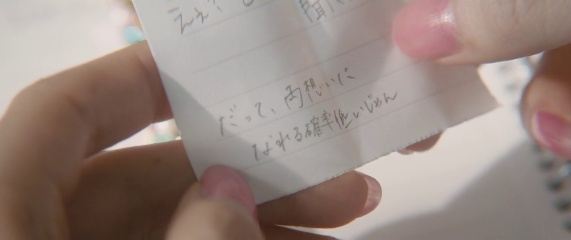 ええ?
聞
だって、両想いに
なれる確率低いじゃん